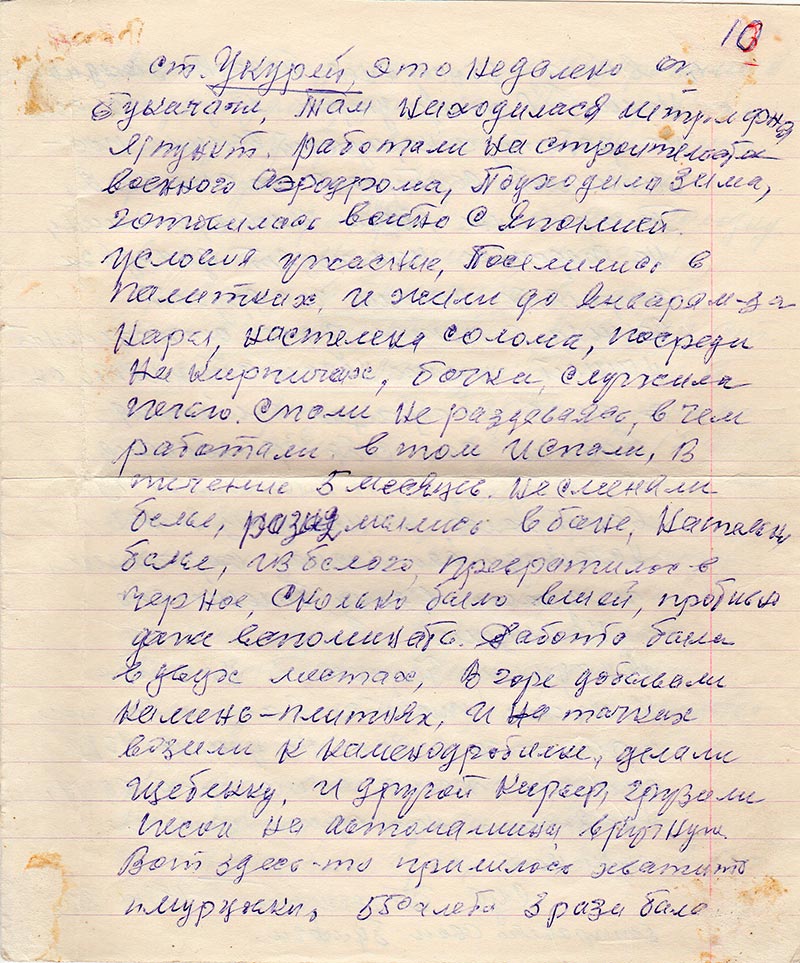 10
ст. Укурей, это недалеко от
Букачачи, там находилася штрафна
я пункт. работали на строительстве
военного Аэродрома, Подходила Зима,
готовилась война с Японией.
условия ужасные, Поселились в
палатках, и жили до Января м-за
нары, настелена солома, посреди
на кирпичах, бочка, служила
печью. Спали не раздеваясь, в чем
работали в том и спали, В
течение 5 месяцев. не сменали
белье, мылись в бане, Нательн
белье, из белого, превратилос в
черное, Сколько было вшей, противно
даже вспоминать. Работа была
в двух местах, В горе добывали
камень-плитняк, и на тачках
возили к камнедробилке, делали
щебенку, и другой карьер, грузили
песок на автомашины, вручную.
Вот здесь-то пришлось хватить
550 хлеба 3 раза бала